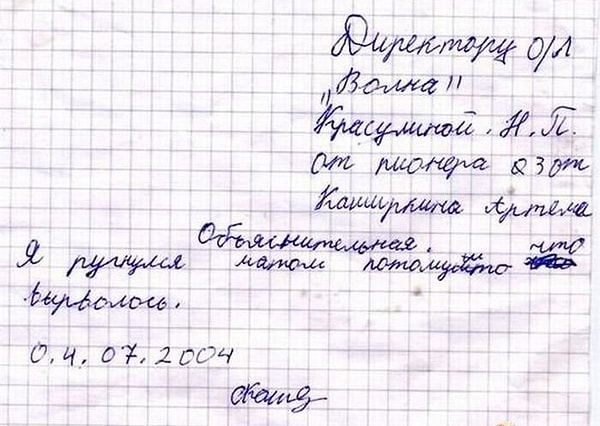 Директору о/л
„Волна"
Красулиной. Н. П.
от пионера 23 от
Каширкина Артема
Объяснительная.
Я ругнулся матом потому что
вырволось.
0.4.07.2004